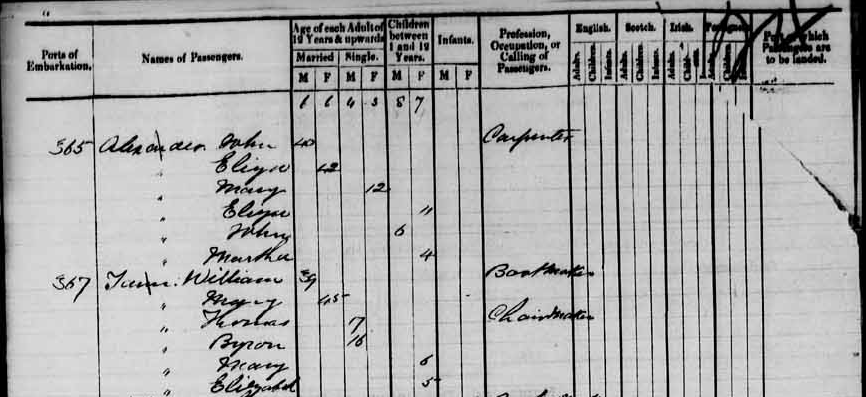 Ports of Embarkation.
Names of Passengers.
Age of each Adult of 12 Years & upwards
Married
Single.
M F M F
Children between 1 and 12 Years.
M F
Infants.
M F
Profession, Occupation, or Calling of Passengers.
English.
Adults. Children. Infants.
Scotch.
Adults. Children. Infants.
Irish.
Adults. Children. Infants.
Passengers are to be landed.
6 6 4 3 8 7
365 Alexander John 40 Carpenter
" Eliza 42
" Mary 12
" Eliza 11
" John 6
" Martha 4
367 William 39 Bootmaker
" Mary 45
" Thomas 7 Chairmaker
" Byron 16
" Mary 6
" Elizabeth 5